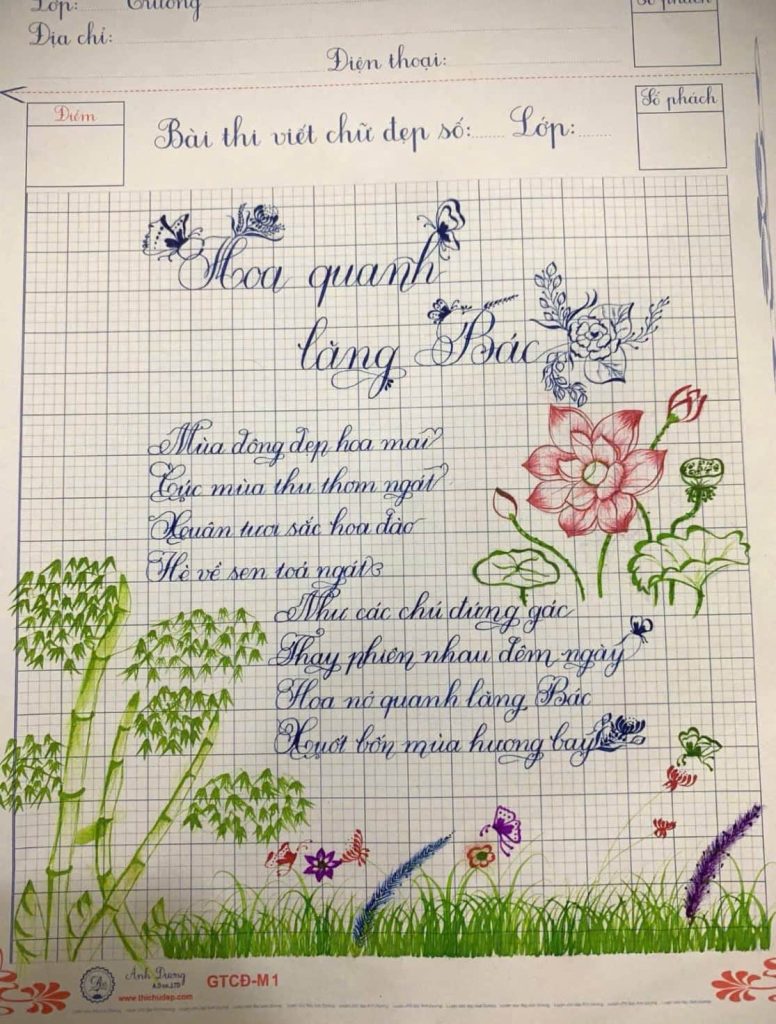 Lớp: Trường
Địa chỉ:
Điện thoại:
Số phách
Điểm
Bài thi viết chữ đẹp số: Lớp:
Số phách
Hoa quanh
lăng Bác
Mùa đông đẹp hoa mai
Cúc mùa thu thơm ngát
Xuân tươi sắc hoa đào
Hè về sen toả ngát
Như các chú đứng gác
Thay phiên nhau đêm ngày
Hoa nở quanh lăng Bác
Suốt bốn mùa hương bay
Ánh Dương
A.D co.,LTD
www.thichudep.com
GTCĐ-M1